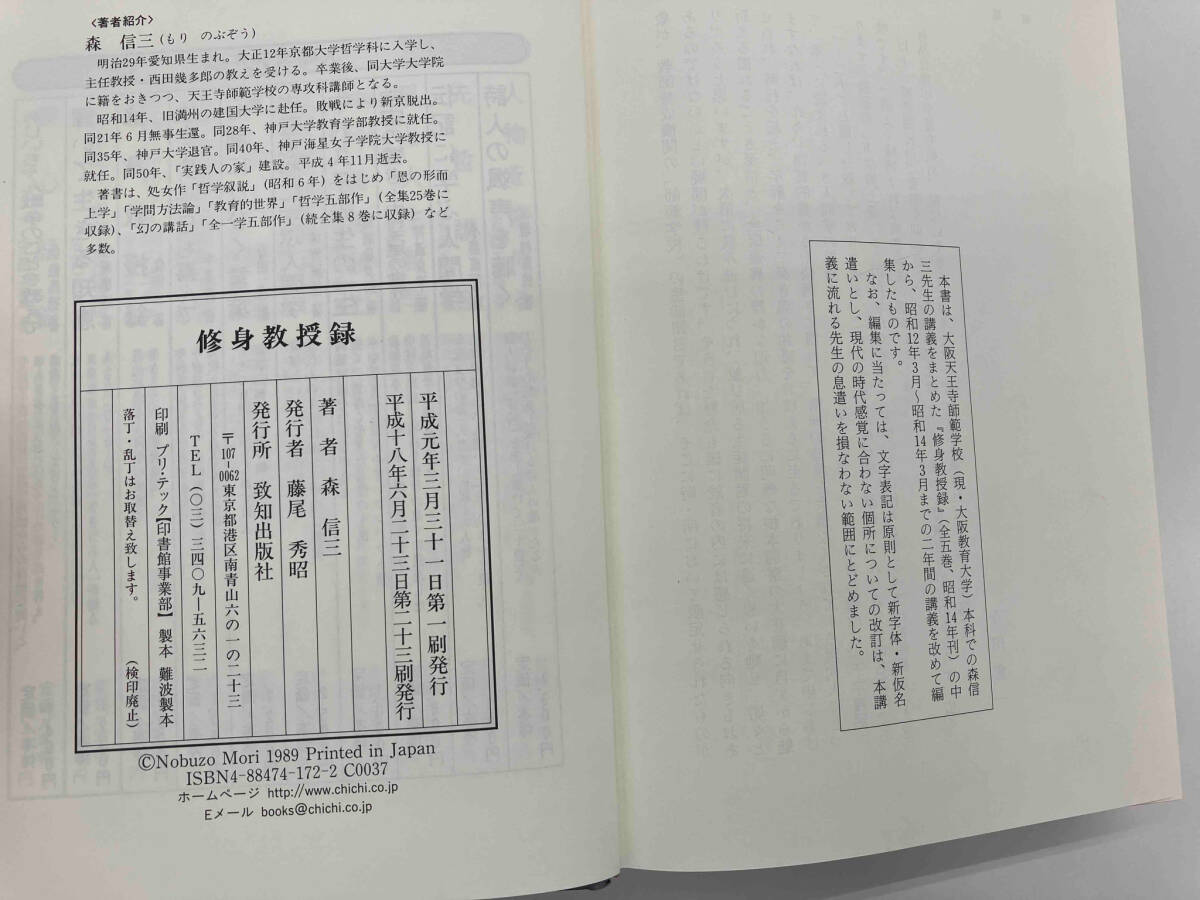 本書は、大阪天王寺師範学校（現・大阪教育大学）本科での森信
三先生の講義をまとめた『修身教授録』（全五巻、昭和14年刊）の中
から、昭和12年3月～昭和14年3月までの二年間の講義を改めて編
集したものです。
なお、編集に当たっては、文字表記は原則として新字体・新仮名
遣いとし、現代の時代感覚に合わない個所についての改訂は、本講
義に流れる先生の息遣いを損なわない範囲にとどめました。
〈著者紹介〉
森　信三（もり　のぶぞう）
明治29年愛知県生まれ。大正12年京都大学哲学科に入学し、
主任教授・西田幾多郎の教えを受ける。卒業後、同大学大学院
に籍をおきつつ、天王寺師範学校の専攻科講師となる。
昭和14年、旧満州の建国大学に赴任。敗戦により新京脱出。
同21年6月無事生還。同28年、神戸大学教育学部教授に就任。
同35年、神戸大学退官。同40年、神戸海星女子学院大学教授に
就任。同50年、「実践人の家」建設。平成4年11月逝去。
著書は、処女作「哲学叙説」（昭和6年）をはじめ「恩の形而
上学」「学問方法論」「教育的世界」「哲学五部作」（全集25巻に
収録）、「幻の講話」「全一学五部作」（続全集8巻に収録）など
多数。
修身教授録
平成元年三月三十一日第一刷発行
平成十八年六月二十三日第二十三刷発行
著　者　森　信三
発行者　藤尾　秀昭
発行所　致知出版社
〒107-0062 東京都港区南青山六の一の二十三
TEL（〇三）三四〇九―五六三二
印刷　プリ・テック【印書館事業部】　製本　難波製本
落丁・乱丁はお取替え致します。　（検印廃止）
©Nobuzo Mori 1989 Printed in Japan
ISBN4-88474-172-2 C0037
ホームページ http://www.chichi.co.jp
Eメール books@chichi.co.jp